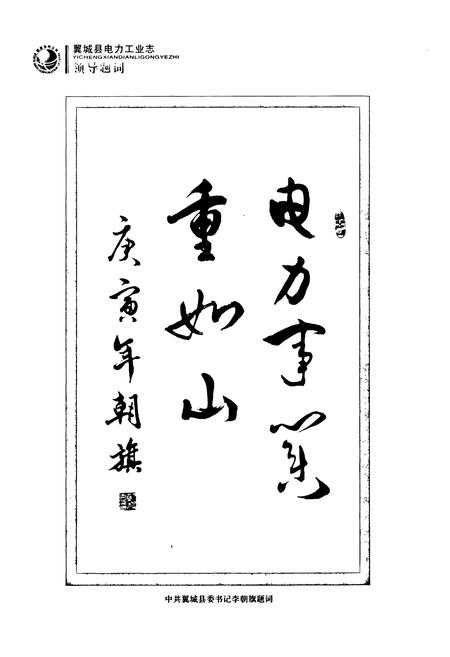 翼城县电力工业志
YICHENGXIANDIANLIGONGYEZHI
领导题词
电力事业
重如山
庚寅年朝旗
中共翼城县委书记李朝旗题词